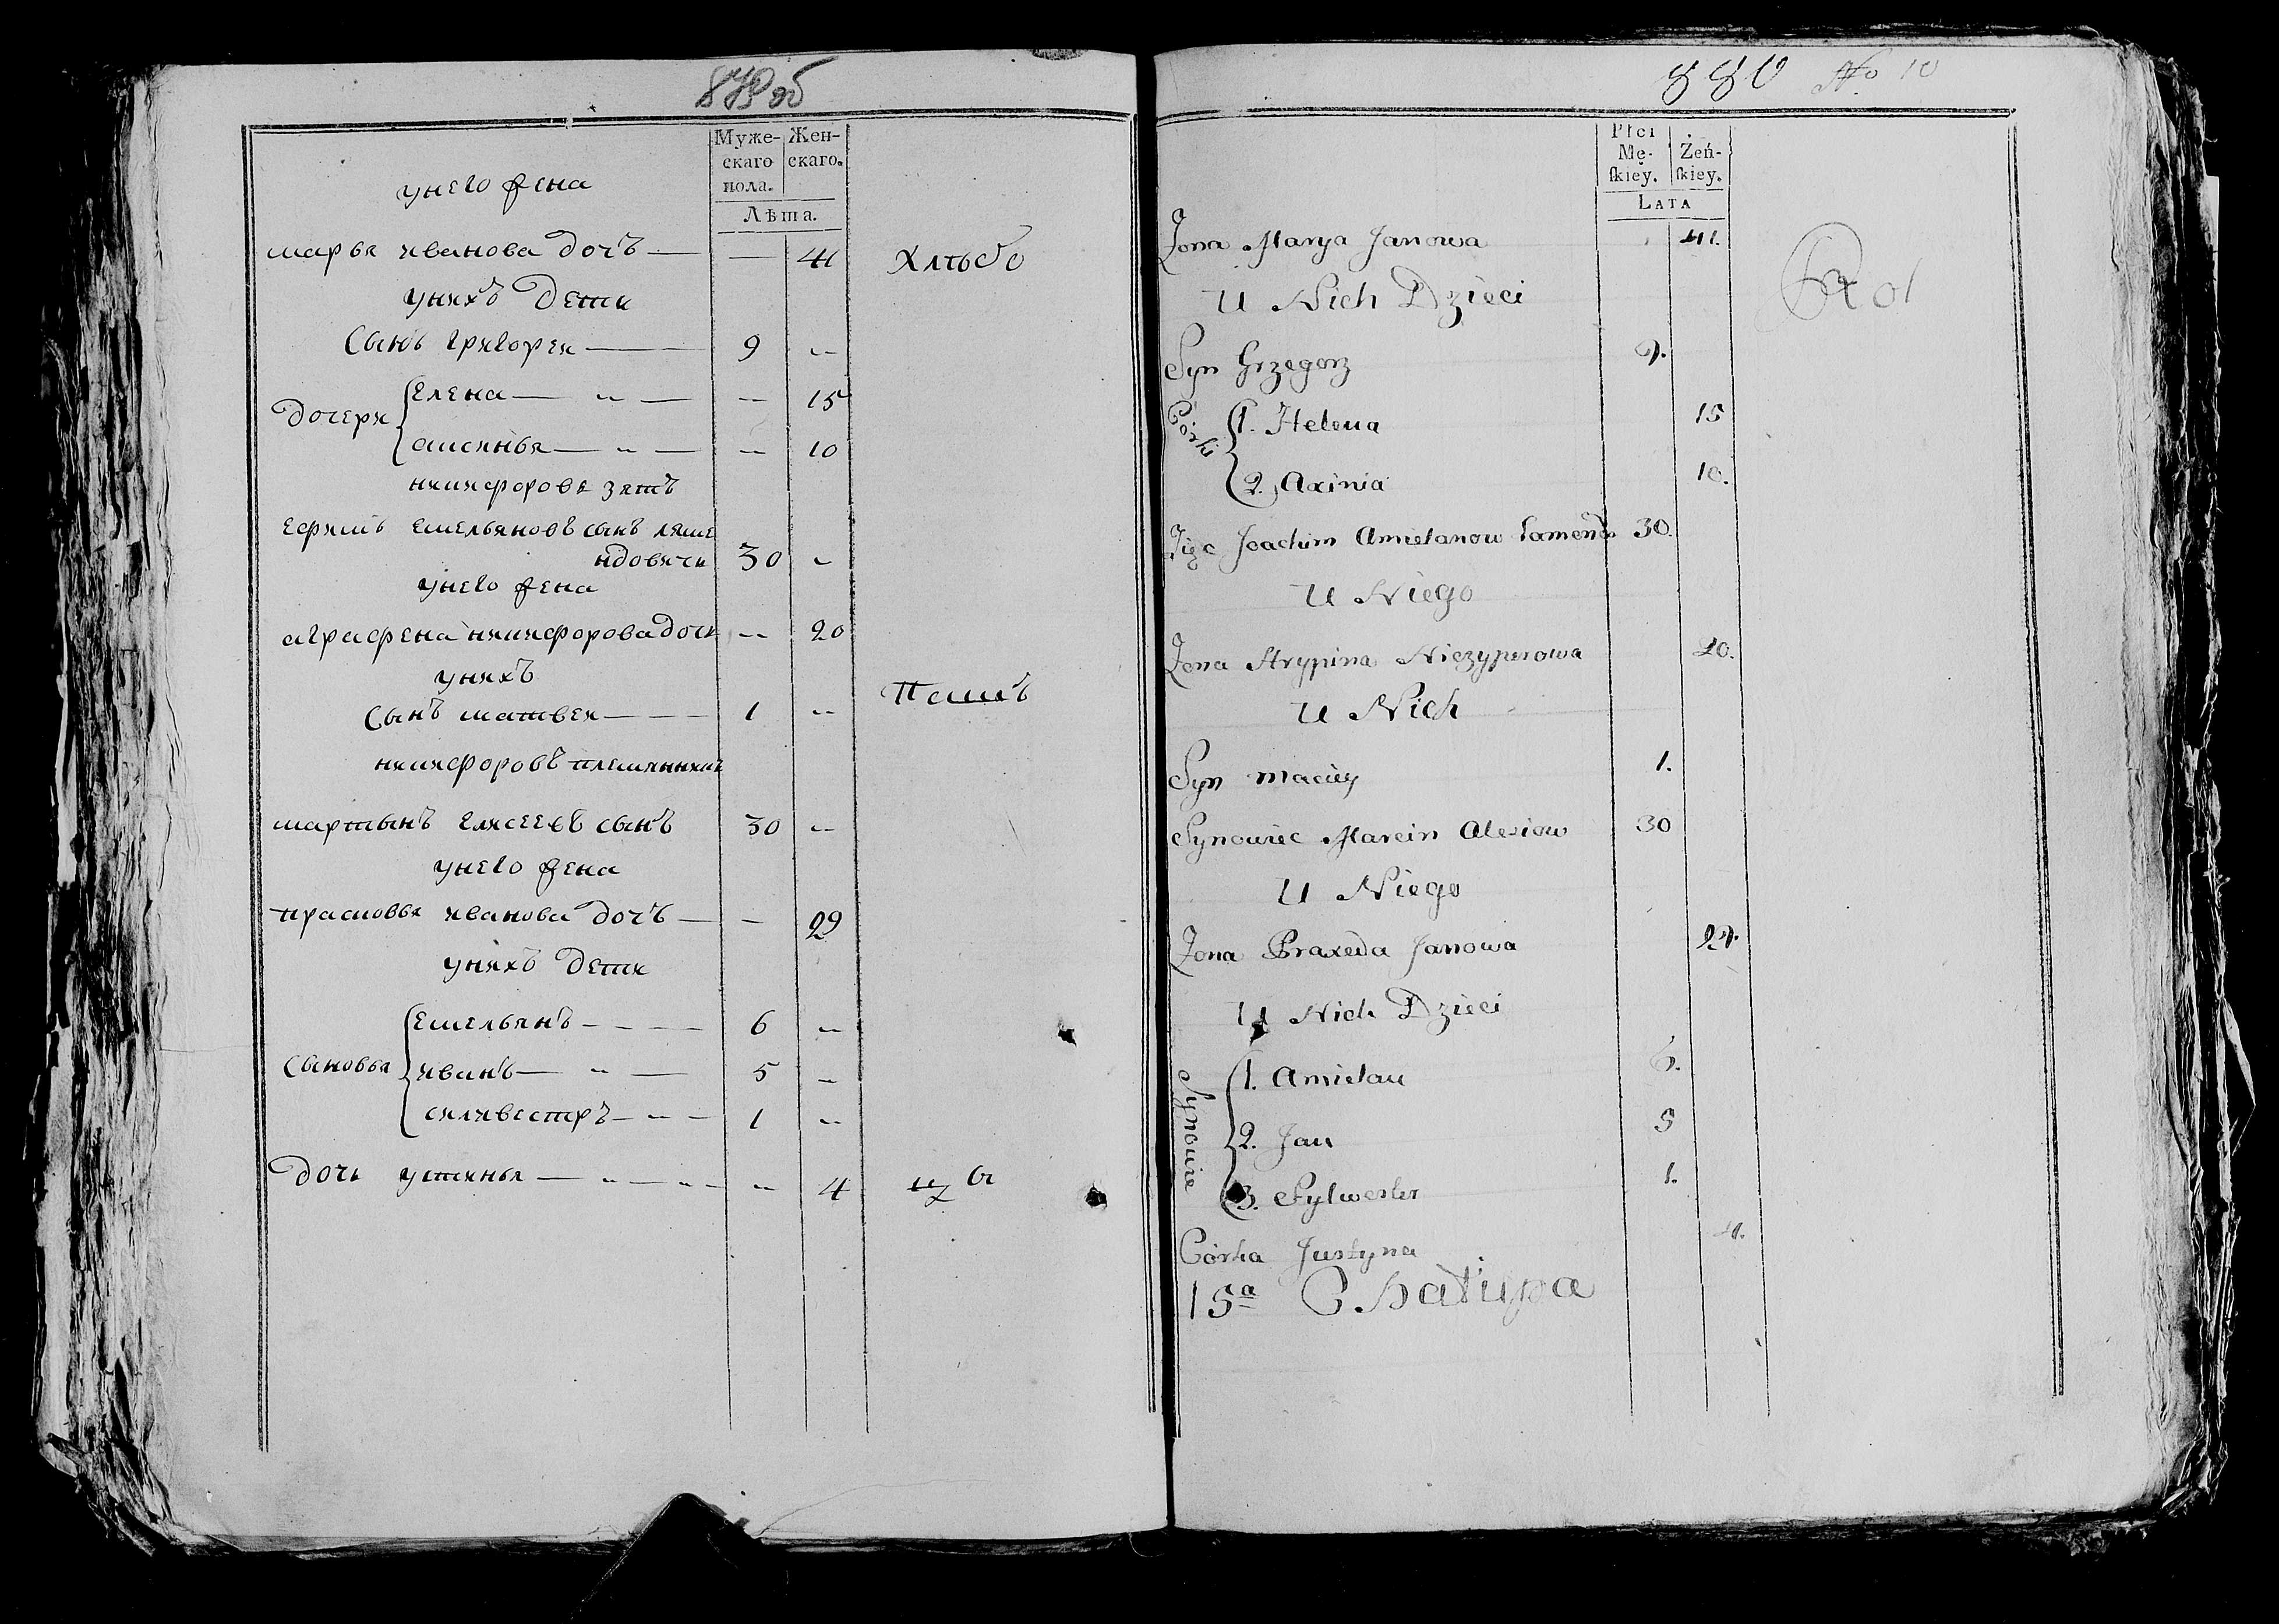 879об
Муже- Жен-
скаго скаго.
пола.
Лѣта.
унего жена
марья иванова дочъ — — 41 Хлѣбо
унихъ дети
Сынъ григорей — 9 --
дочери { Елена — " — -- 15
аксинья — " — -- 10
никифорова зятъ
Ефимъ Емельяновъ сынъ ляме
ндовичь 30 -
унего жена
аграфена никифорова дочь -- 20
унихъ
Сынъ матвей — 1 -- Пашъ
никифоровъ племянникъ
мартынъ Елисеевъ сынъ 30 --
унего жена
прасковья иванова дочъ — - 29
унихъ дети
Сыновья { Емельянъ — 6 --
иванъ — " — 5 --
силивестръ — " — 1 --
дочь устинья — " — " -- 4
880 No 10
Płci
Mę- Żeń-
skiey. skiey.
LATA
Zona Marya Janowa 41.
U Nich Dzieci
Syn Grzegorz 9.
Córki { 1. Helena 15
2. Axinia 10.
Zięc Joachim Amielanow 30.
U Niego
Zona Niczyperowa 20.
U Nich
Syn Maciey 1.
Synowiec Marcin Alexiow 30
U Niego
Zona Praxeda Janowa 29.
U Nich Dzieci
Synowie { 1. Amielan 6.
2. Jan 5
3. Sylwester 1.
Córka Justyna 4.
15a Chatupa